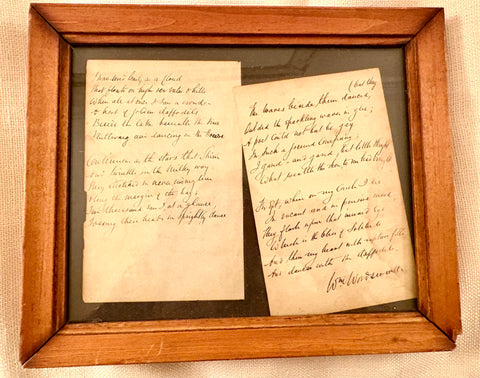 I wandered lonely as a cloud
That floats on high o'er vales & hills
When all at once I saw a crowd
A host of golden daffodils
Beside the lake beneath the trees
Fluttering and dancing in the breeze
Continuous as the stars that shine
And twinkle on the Milky way
They stretched in never ending line
Along the margin of the bay:
Ten thousand saw I at a glance,
Tossing their heads in sprightly dance
The waves beside them danced,
(but they
Outdid the sparkling waves in glee;
A poet could not but be gay
In such a jocund company;
I gazed and gazed, but little thought
What wealth the show to me had brought
For oft, when on my couch I lie
In vacant and in pensive mood,
They flash upon that inward Eye
Which is the bliss of Solitude
And then my heart with rapture fills
And dances with the daffodils.
Wm Wordsworth